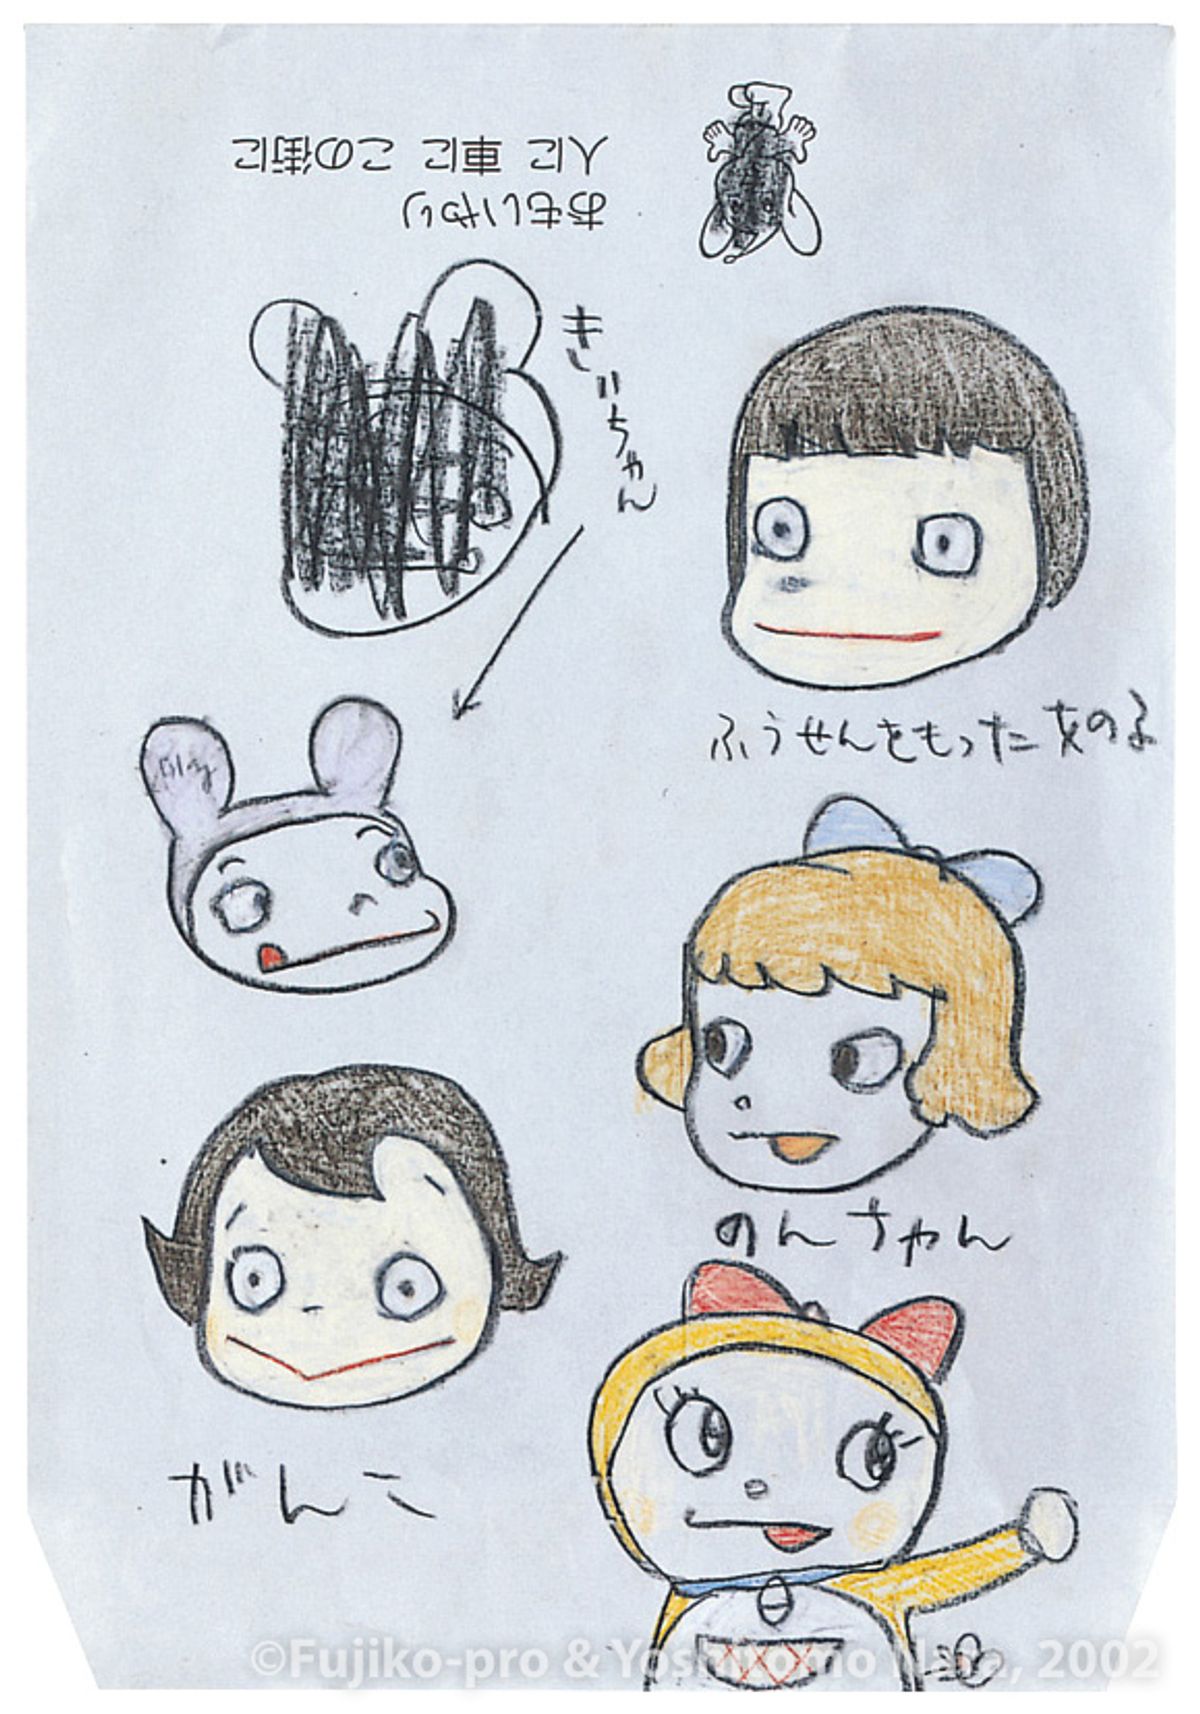 人に 車に この街に
おもいやり
きいちゃん
ふうせんをもった女の子
のんちゃん
がんこ
©Fujiko-pro & Yoshitomo Nara, 2002